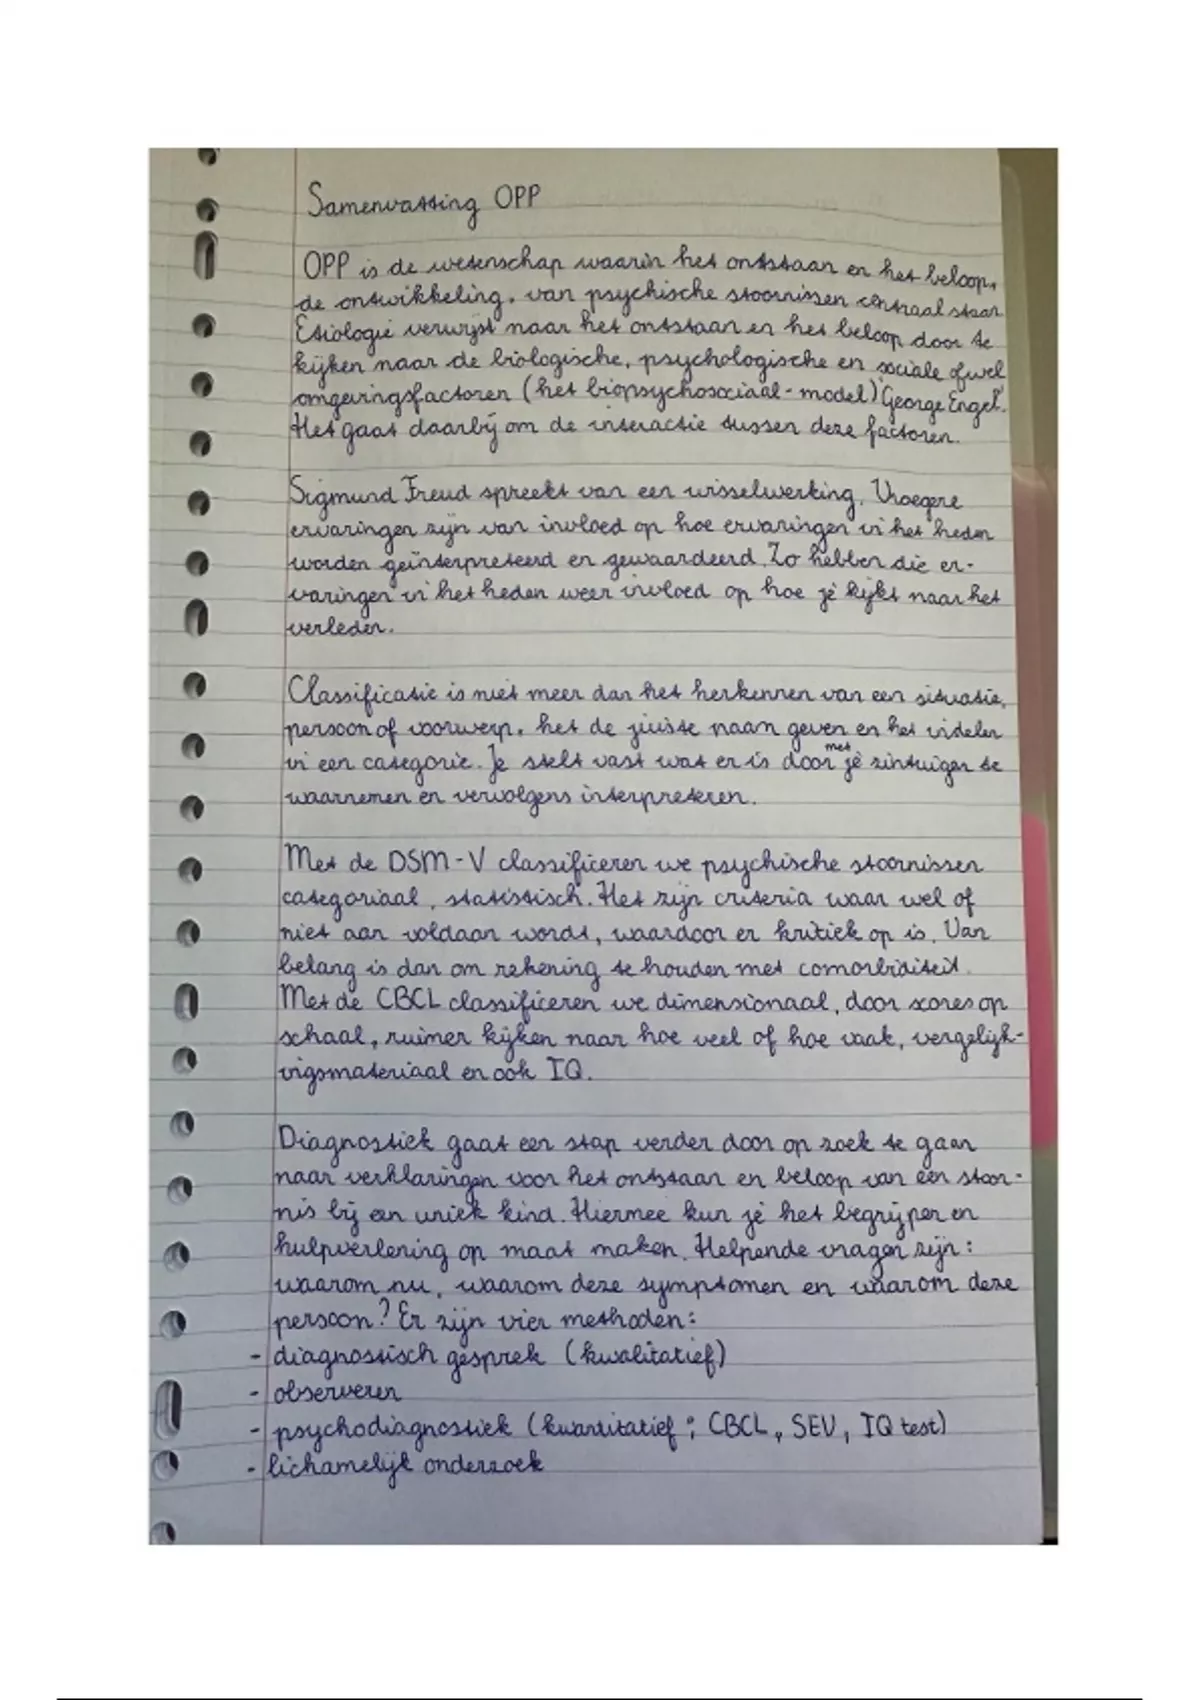 Samenvatting OPP
OPP is de wetenschap waarin het ontstaan en het beloop,
de ontwikkeling, van psychische stoornissen centraal staan
Etiologie verwijst naar het ontstaan en het beloop door te
kijken naar de biologische, psychologische en sociale ofwel
omgevingsfactoren (het biopsychosociaal-model) George Engel.
Het gaat daarbij om de interactie tussen deze factoren.
Sigmund Freud spreekt van een wisselwerking. Vroegere
ervaringen zijn van invloed op hoe ervaringen in het heden
worden geïnterpreteerd en gewaardeerd. Zo hebben die er-
varingen in het heden weer invloed op hoe je kijkt naar het
verleden.
Classificatie is niet meer dan het herkennen van een situatie,
persoon of voorwerp, het de juiste naam geven en het indelen
in een categorie. Je stelt vast wat er is door met je zintuigen te
waarnemen en vervolgens interpreteren.
Met de DSM-V classificeren we psychische stoornissen
categoriaal, statistisch. Het zijn criteria waar wel of
niet aan voldaan wordt, waardoor er kritiek op is. Van
belang is dan om rekening te houden met comorbiditeit.
Met de CBCL classificeren we dimensionaal, door scores op
schaal, ruimer kijken naar hoe veel of hoe vaak, vergelijk-
ingsmateriaal en ook IQ.
Diagnostiek gaat een stap verder door op zoek te gaan
naar verklaringen voor het ontstaan en beloop van een stoor-
nis bij een uniek kind. Hiermee kun je het begrijpen en
hulpverlening op maat maken. Helpende vragen zijn:
waarom nu, waarom deze symptomen en waarom deze
persoon? Er zijn vier methoden:
- diagnostisch gesprek (kwalitatief)
- observeren
- psychodiagnostiek (kwantitatief; CBCL, SEV, IQ test)
- lichamelijk onderzoek